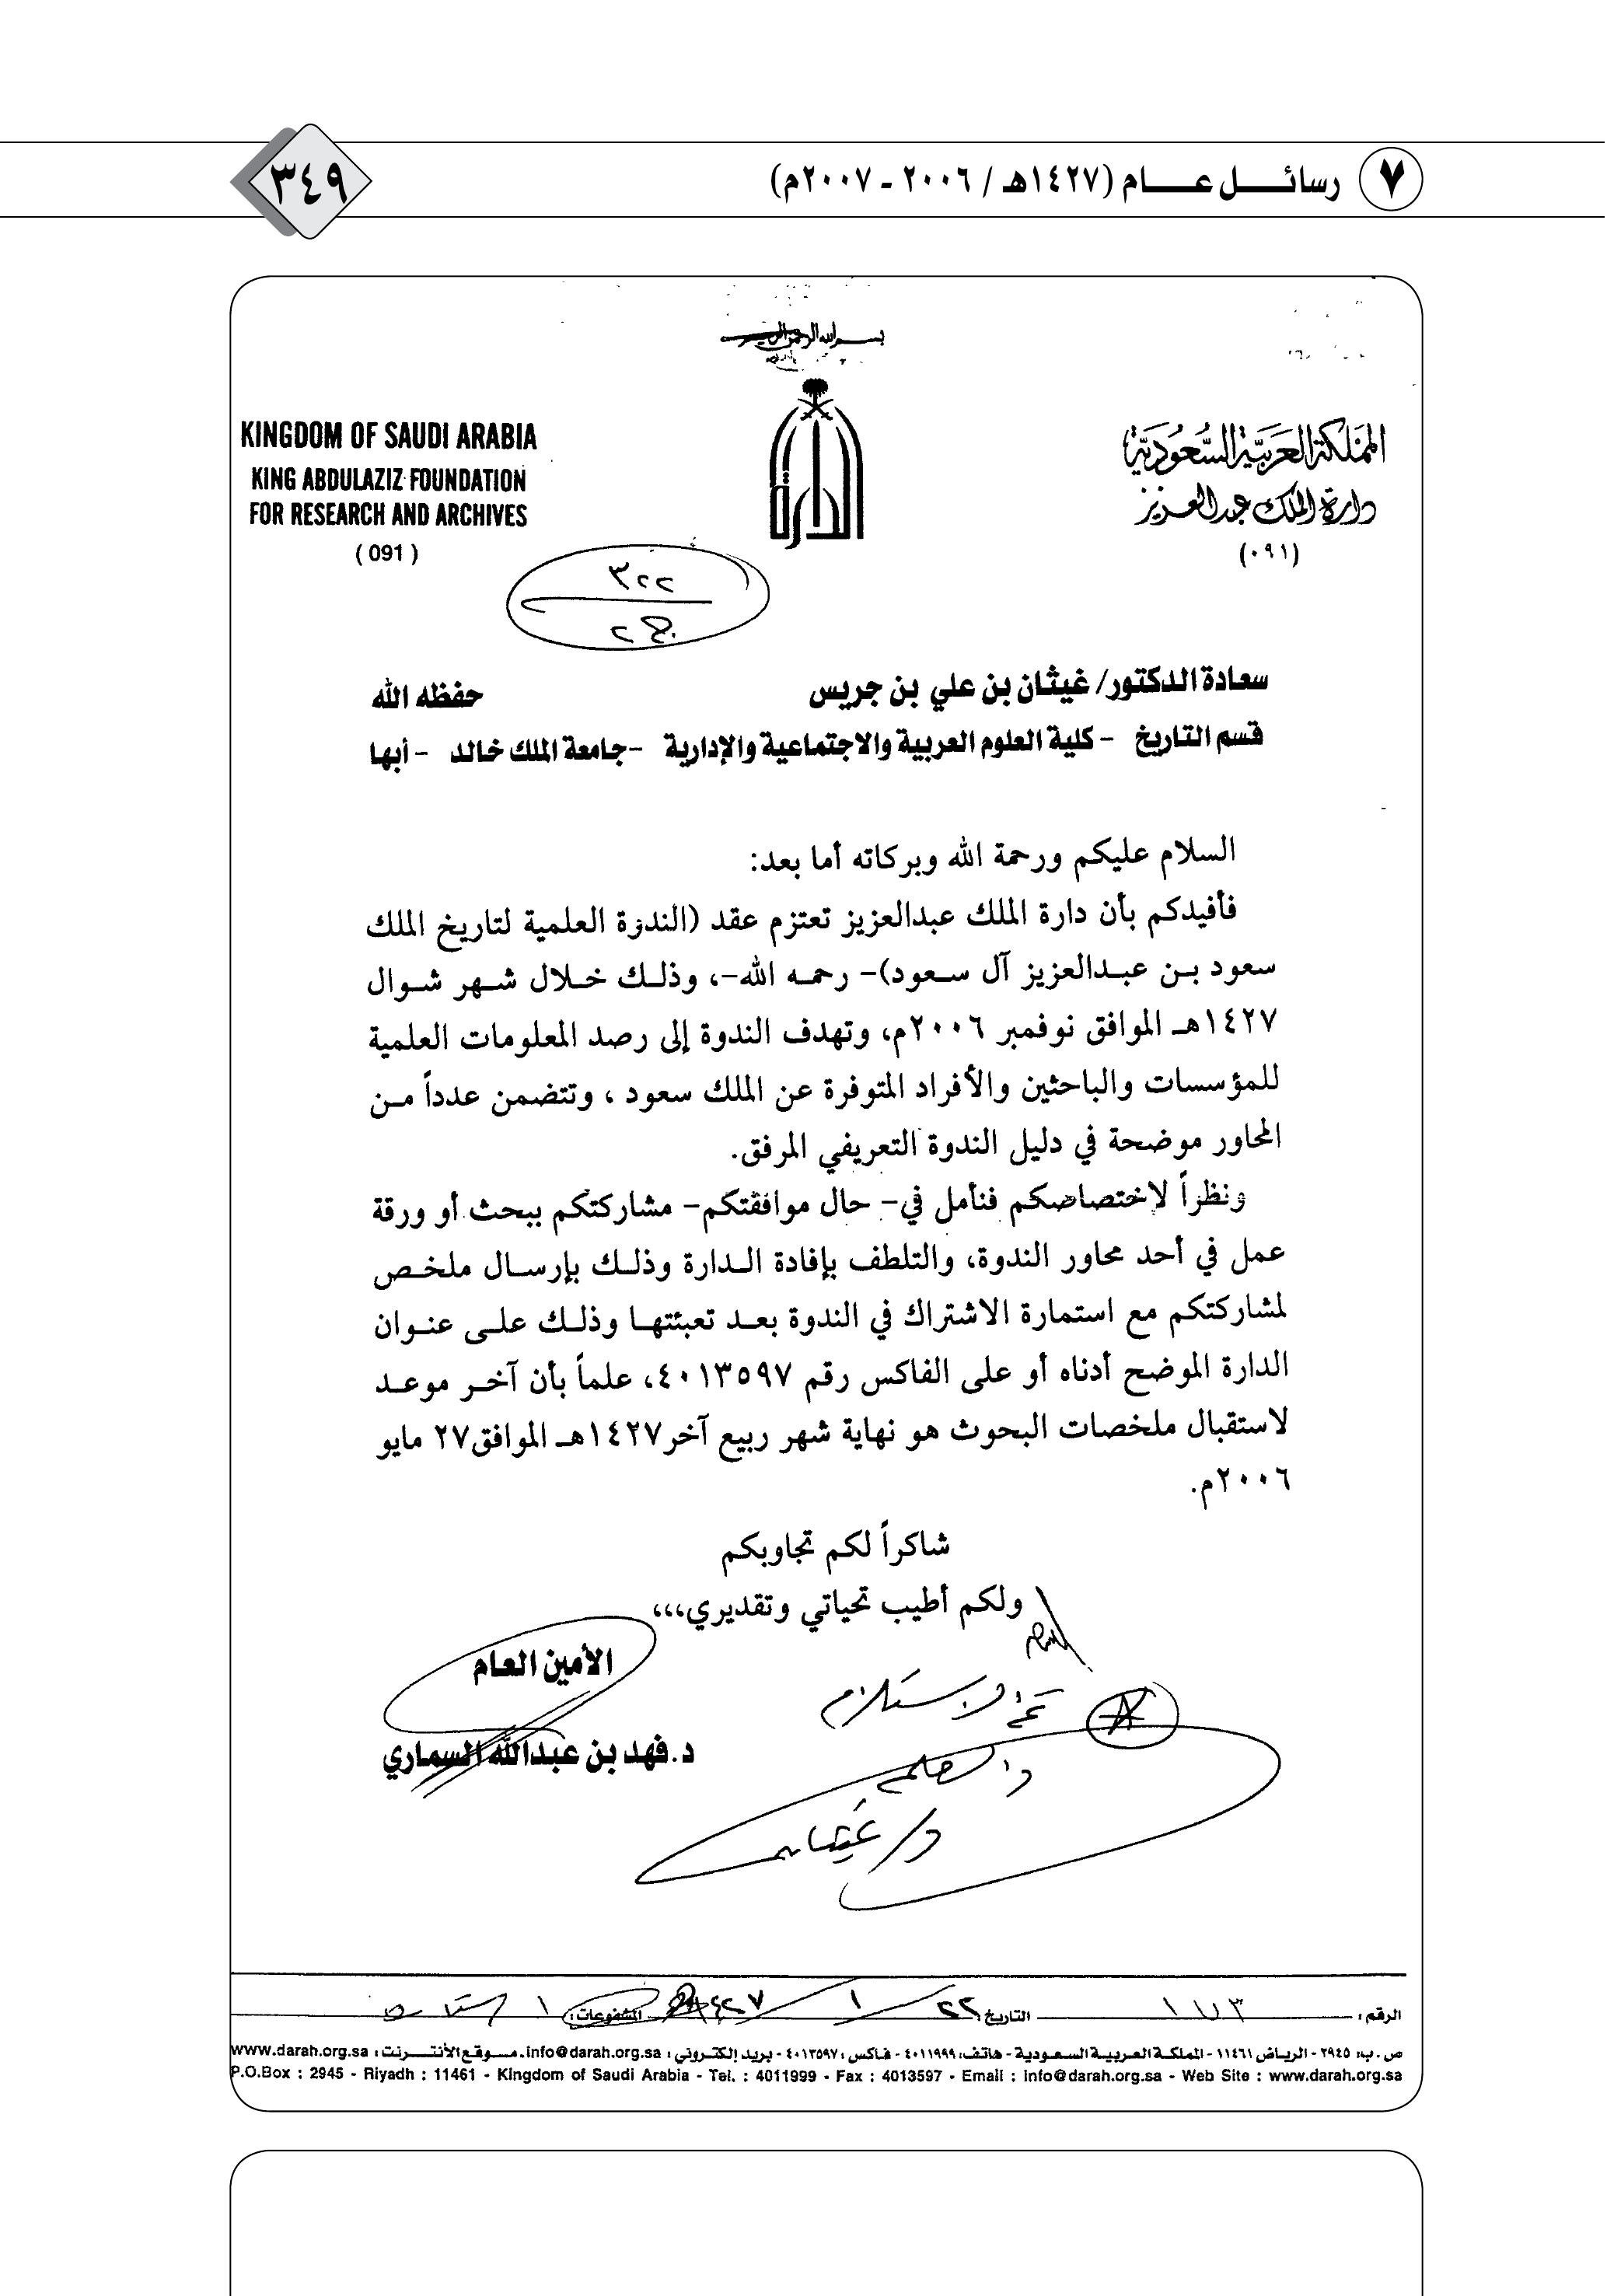 ٧ رسائل عام (١٤٢٧هـ / ٢٠٠٦ - ٢٠٠٧م)
٣٤٩
بسم الله الرحمن الرحيم
المملكة العربية السعودية
دارة الملك عبدالعزيز
(٠٩١)
KINGDOM OF SAUDI ARABIA
KING ABDULAZIZ FOUNDATION
FOR RESEARCH AND ARCHIVES
( 091 )
٣٢٢
سعادة الدكتور/ غيثان بن علي بن جريس حفظه الله
قسم التاريخ - كلية العلوم العربية والاجتماعية والإدارية -جامعة الملك خالد - أبها
السلام عليكم ورحمة الله وبركاته أما بعد:
فأفيدكم بأن دارة الملك عبدالعزيز تعتزم عقد (الندوة العلمية لتاريخ الملك
سعود بن عبدالعزيز آل سعود)- رحمه الله-، وذلك خلال شهر شوال
١٤٢٧هـ الموافق نوفمبر ٢٠٠٦م، وتهدف الندوة إلى رصد المعلومات العلمية
للمؤسسات والباحثين والأفراد المتوفرة عن الملك سعود ، وتتضمن عدداً من
المحاور موضحة في دليل الندوة التعريفي المرفق.
ونظراً لاختصاصكم فنأمل في- حال موافقتكم- مشاركتكم ببحث أو ورقة
عمل في أحد محاور الندوة، والتلطف بإفادة الدارة وذلك بإرسال ملخص
لمشاركتكم مع استمارة الاشتراك في الندوة بعد تعبئتها وذلك على عنوان
الدارة الموضح أدناه أو على الفاكس رقم ٤٠١٣٥٩٧، علماً بأن آخر موعد
لاستقبال ملخصات البحوث هو نهاية شهر ربيع آخر١٤٢٧هـ الموافق٢٧ مايو
٢٠٠٦م.
شاكراً لكم تجاوبكم
ولكم أطيب تحياتي وتقديري،،،
الأمين العام
د.فهد بن عبدالله السماري
تم الاستلام
د/ غيثان
الرقم: ١٧٣ التاريخ: ٢٢/ ١ /١٤٢٧ المشفوعات: ١
ص.ب: ٢٩٤٥ - الرياض ١١٤٦١ - المملكة العربية السعودية - هاتف: ٤٠١١٩٩٩ - فاكس: ٤٠١٣٥٩٧ - بريد إلكتروني: info@darah.org.sa. موقع الأنترنت: www.darah.org.sa
P.O.Box : 2945 - Riyadh : 11461 - Kingdom of Saudi Arabia - Tel. : 4011999 - Fax : 4013597 - Email : info@darah.org.sa - Web Site : www.darah.org.sa